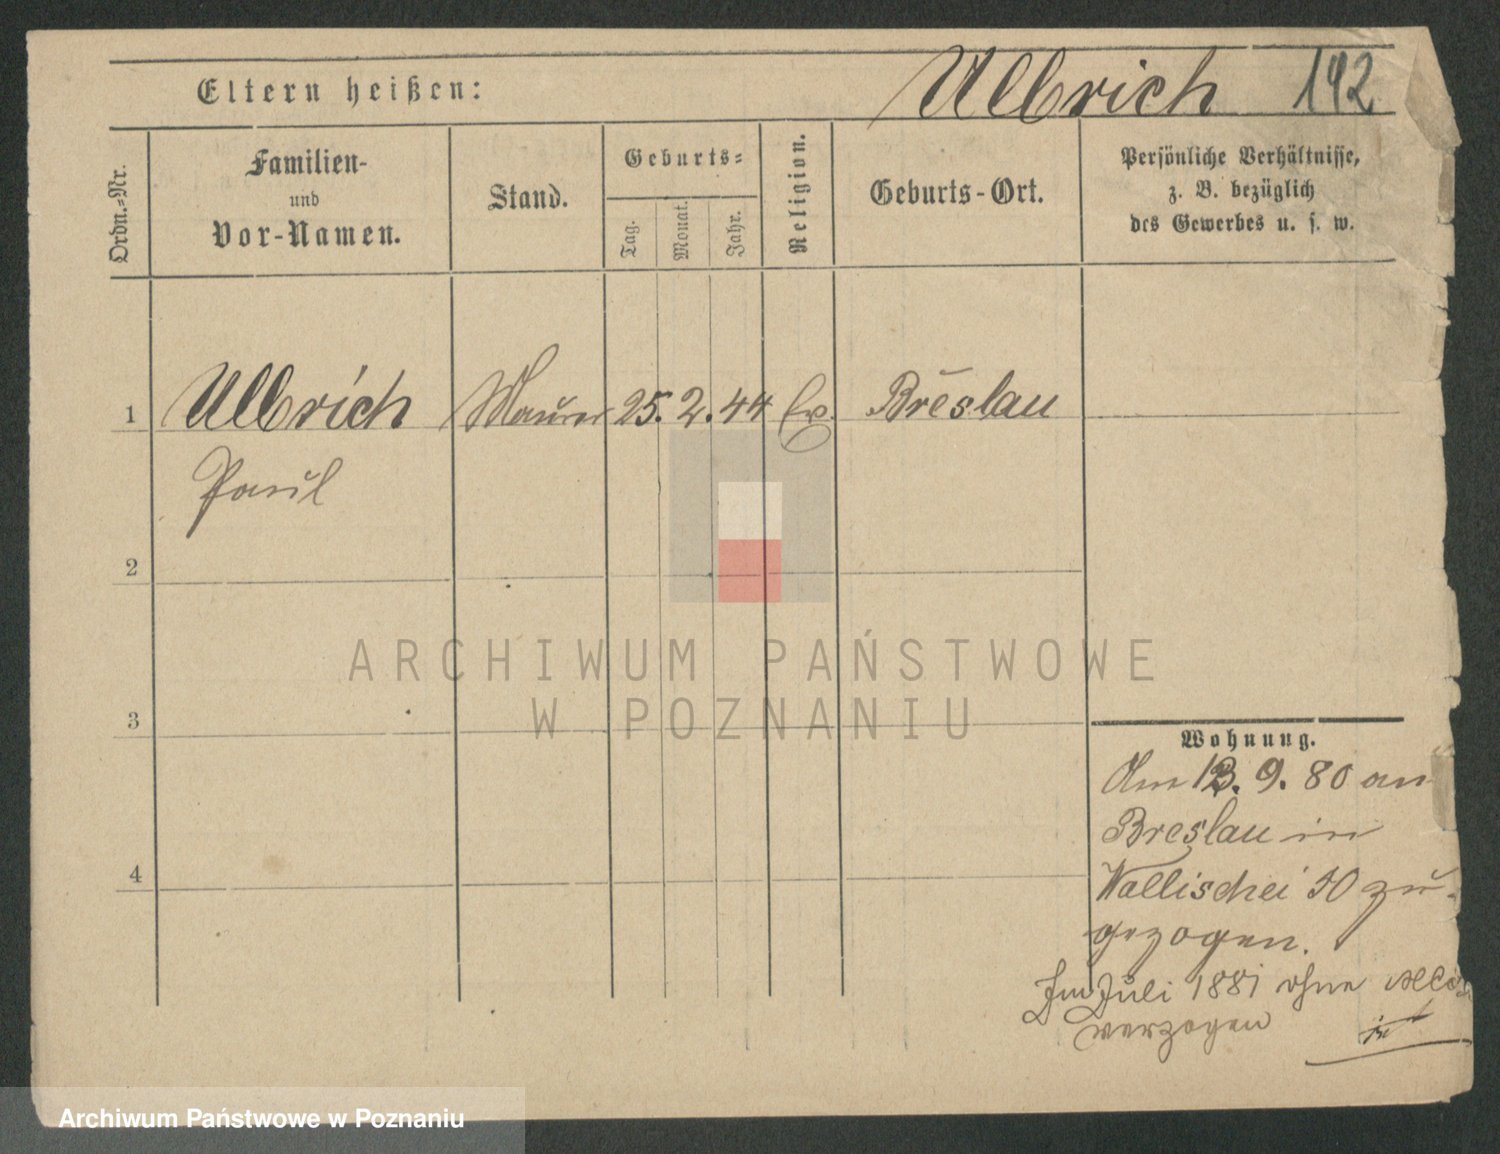 Ulbrich 142
Eltern heißen:
Ordn.-Nr.
Familien-
und
Vor-Namen.
Stand.
Geburts-
Tag.
Monat.
Jahr.
Religion.
Geburts-Ort.
Persönliche Verhältnisse,
z. B. bezüglich
des Gewerbes u. s. w.
1 Ulbrich Maurer 25. 2. 44 Ev. Breslau
Paul
2
3
4
ARCHIWUM PAŃSTWOWE
W POZNANIU
Wohnung.
Am 13. 9. 80 an
Breslau in
Wallischei 50 zu-
gezogen.
Im Juli 1881 ohne
verzogen
Archiwum Państwowe w Poznaniu